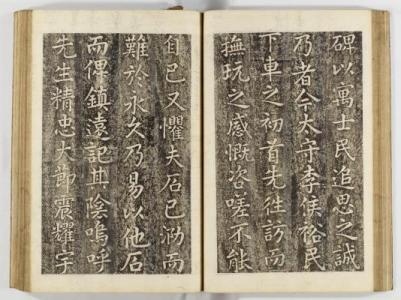 碑以寓士民追思之誠
乃者今太守李侯裕民
下車之初首先徃訪而
撫玩之感慨咨嗟不能
自已又懼夫石已泐而
難於永久乃易以他石
而俾鎮遠記其陰嗚呼
先生精忠大節震耀宇